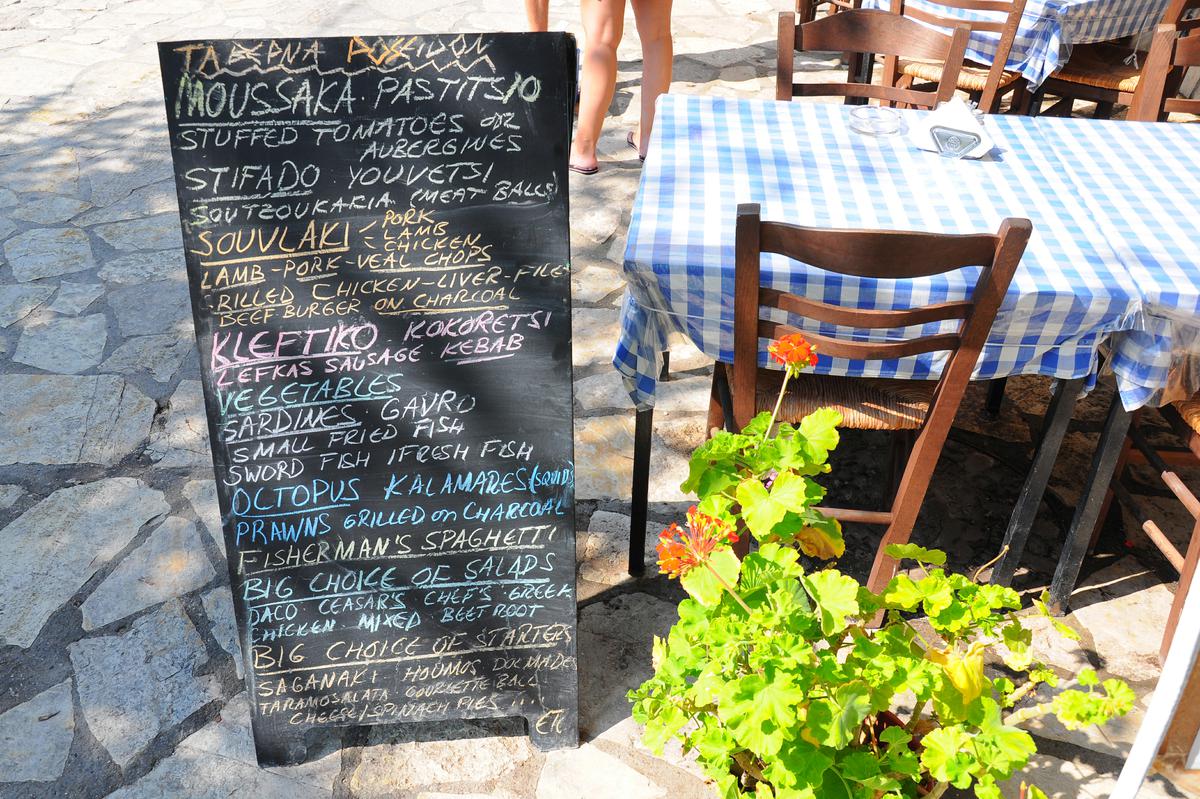 ΤΑΒΕΡΝΑ POSEIDON
MOUSSAKA · PASTITSIO
STUFFED TOMATOES OR
AUBERGINES
STIFADO YOUVETSI
SOUTZOUKARIA (MEAT BALLS)
PORK
SOUVLAKI - LAMB
- CHICKEN
LAMB - PORK - VEAL CHOPS
GRILLED CHICKEN - LIVER - FILE
BEEF BURGER ON CHARCOAL
KLEFTIKO KOKORETSI
LEFKAS SAUSAGE · KEBAB
VEGETABLES
SARDINES · GAVRO
SMALL FRIED FISH
SWORD FISH / FRESH FISH
OCTOPUS KALAMARES (SQUID)
PRAWNS GRILLED ON CHARCOAL
FISHERMAN'S SPAGHETTI
BIG CHOICE OF SALADS
DACO · CEASAR'S · CHEF'S · GREEK
CHICKEN · MIXED BEETROOT
BIG CHOICE OF STARTERS
SAGANAKI · HOUMOS DOLMADES
TARAMOSALATA COURLETTE BALL
CHEESE/SPINACH PIES ....
ETC